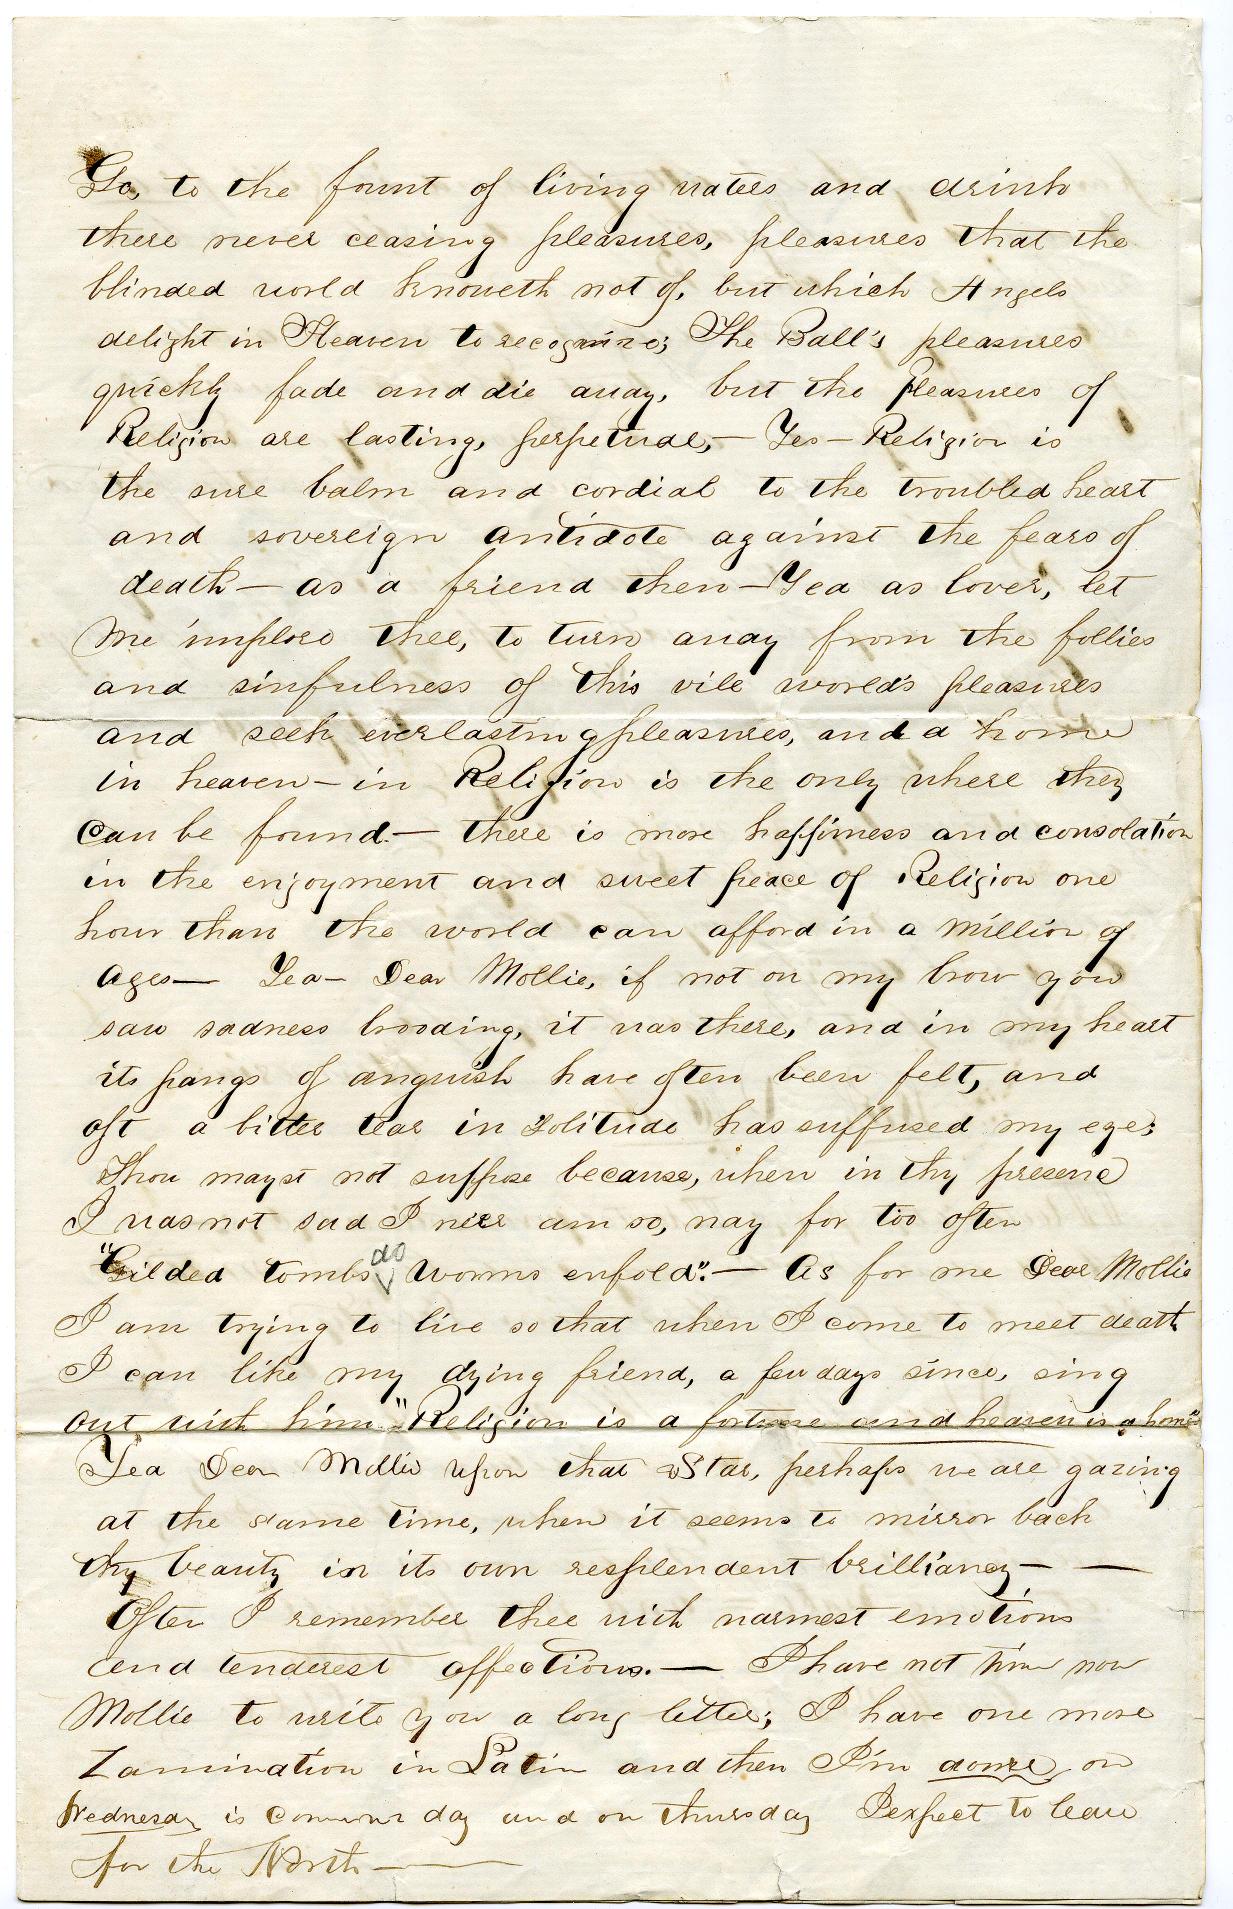 Go, to the fount of living waters and drink
there never ceasing pleasures, pleasures that the
blinded world knoweth not of, but which Angels
delight in Heaven to recognize; The Ball's pleasures
quickly fade and die away, but the pleasures of
Religion are lasting, perpetual,— Yes — Religion is
the sure balm and cordial to the troubled heart
and sovereign antidote against the fears of
death — as a friend then — Yea as lover, let
me implore thee, to turn away from the follies
and sinfulness of this vile world's pleasures
and seek everlasting pleasures, and a home
in heaven — in Religion is the only where they
can be found — there is more happiness and consolation
in the enjoyment and sweet peace of Religion one
hour than the world can afford in a million of
ages — Yea — Dear Mollie, if not on my brow you
saw sadness brooding, it was there, and in my heart
its pangs of anguish have often been felt, and
oft a bitter tear in solitude has suffused my eye;
Thou mayst not suppose because, when in thy presenc
I was not sad I neer am so, nay for too often
"Gilded tombs do worms enfold". — As for me Dear Mollie
I am trying to live so that when I come to meet death
I can like my dying friend, a few days since, sing
out with him "Religion is a fortune and heaven is a home"
Yea Dear Mollie upon that Star, perhaps we are gazing
at the same time, when it seems to mirror back
thy beauty in its own resplendent brilliancy — —
Often I remember thee with warmest emotions
and tenderest affections. — I have not time now
Mollie to write you a long letter; I have one more
Zamination in Latin and then I'm done, on
Wednesday is comm day and on thursday I expect to leave
for the North —